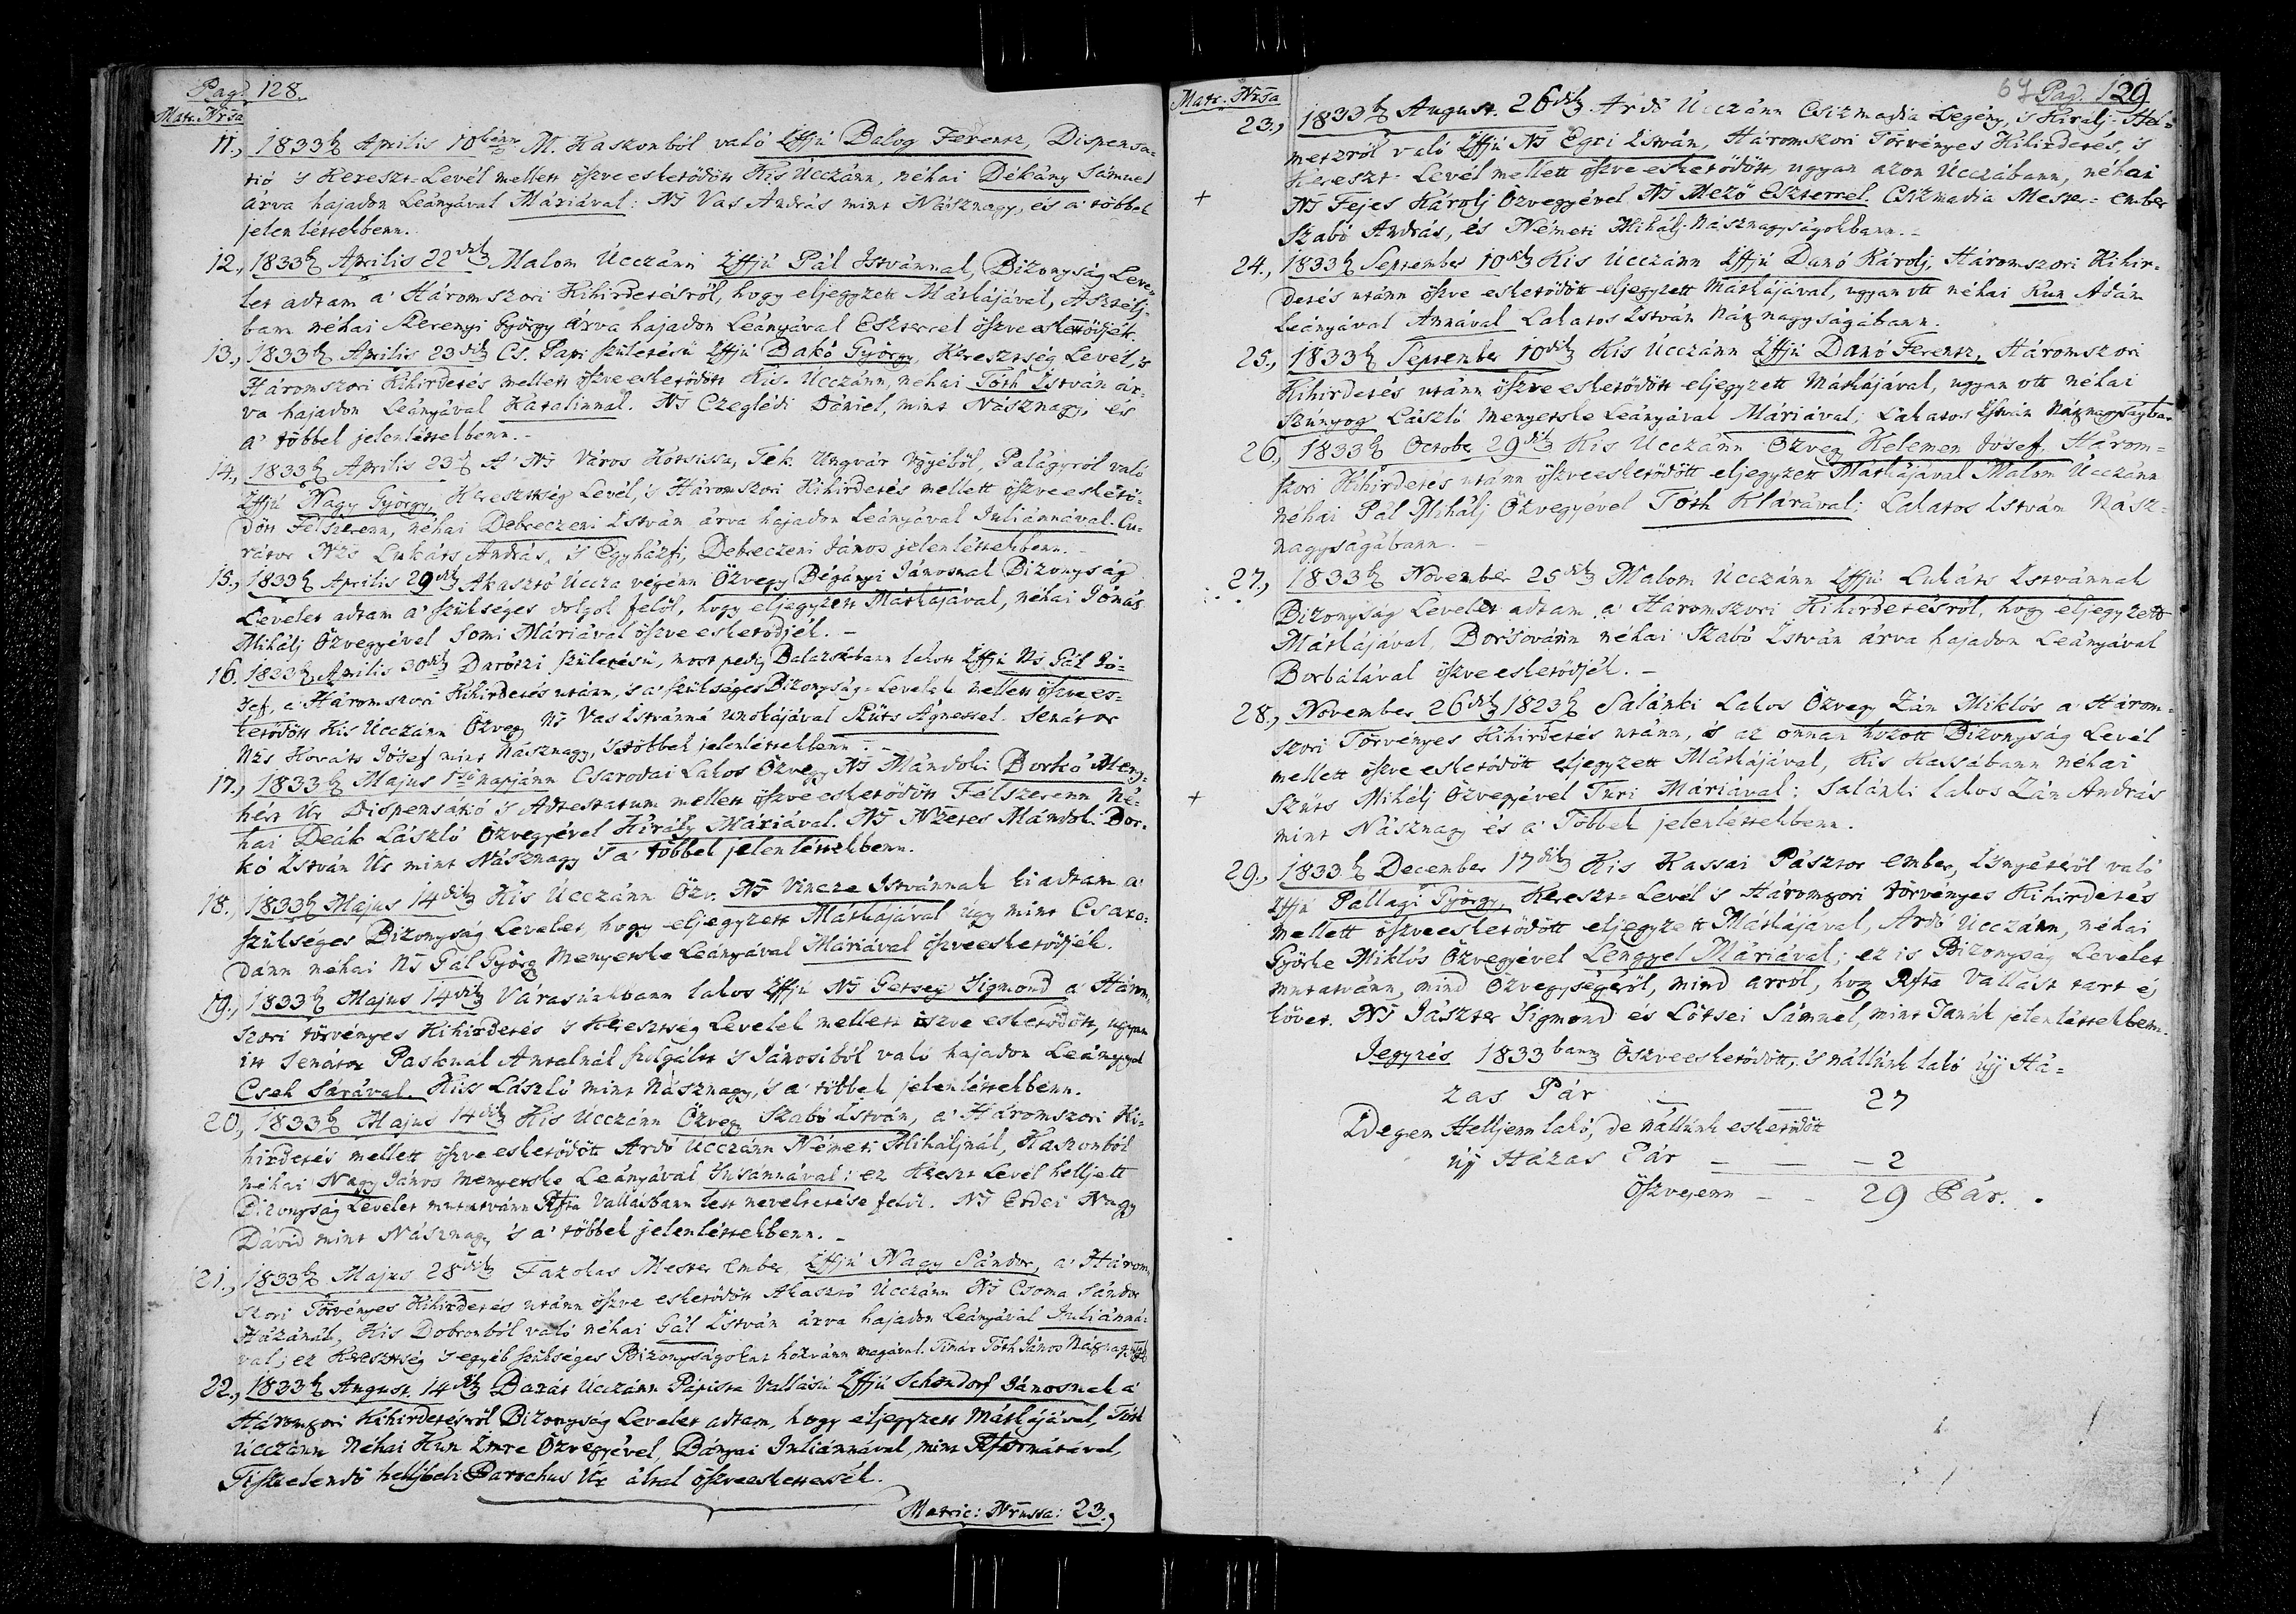 Pag. 128.
Matr. Nrsa
11., 1833b. Aprilis 10kénn M. Kaszonból való Iffjú Balog Ferentz, Dispensa=
tió, 's Kereszt-Levél mellett öszveesketödött Kis Úcczánn, néhai Dékány Sámuel
árva hajadon Leányával Máriával: Ns Vas András mint Násznagy, és a' többek
jelenléttekbenn.
12., 1833b. Aprilis 22dik Malom Úcczánn Iffjú Pál Istvánnal, Bizonyság Leve=
let adtam a' Háromszori Kihirdetésről, hogy eljegyzett Mátkájával, Asztélj=
bann néhai Szerenyi György árva hajadon Leányával Eszterrel öszveeskettödjék.
13., 1833b. Aprilis 23dik Cs. Papi születésü Iffjú Dakó György, Keresztség Levél, 's
Háromszori Kihirdetés mellett öszveesketödött Kis-Úcczánn, néhai Tóth István ár=
va hajadon Leányával Katalinnal. Ns Czeglédi Dániel, mint Násznagy, és
a' többek jelenléttekbenn.-
14., 1833b. Aprilis 23 A' Ns Város Kótsissa, Tek. Ungvár Vgyéböl, Palágyról való
Iffjú Nagy György, Keresztség Levél, 's Háromszori Kihirdetés mellett öszveesketö=
dött Felszerenn, néhai Debreczeni István árva hajadon Leányával Juliánnával. Cu=
rátor Nzs Lukáts András, 's Egyházfi, Debreczeni János jelenléttekbenn.-
15., 1833b. Aprilis 29dik Akasztó Úccza végénn Özvegy Bégányi Jánosnak Bizonyság
Levelet adtam a' szükséges dolgok felöl, hogy eljegyzett Mátkájával, néhai Jónás
Mihálj Özvegyével Somi Máriával öszve esketödjék.-
16. 1833b. Aprilis 30dik Daróczi születésü, most pedig Balazsérbann lakott Iffjú Ns Gál Jó=
sef, a Háromszori Kihirdetés utánn, 's a' szükséges Bizonyság-Levelek mellett öszvees=
ketödött Kis Úcczánn Özvegy Ns Vas Istvánná unokájával Szüts Ágnessel. Senátor
Nzs Kováts Jósef mint Násznagy, 's többek jelenléttekbenn.-
17., 1833b. Majus 1ső napjánn Csarodai Lakos Özvegy Ns Mándoki Borkó Meny=
hért Úr Dispensatió 's Adtestatum mellett öszveesketödött Felszerenn Né=
hai Deák László Özvegyével Király Máriával. Ns Nzetes Mándoki Bor=
kó István Úr mint Násznagy 's a' többek jelenléttekbenn.
18., 1833b. Majus 14dik Kis Úcczánn Özv. Ns Vincze Istvánnak kiadtam a'
szükséges Bizonyság Levelet, hogy eljegyzett Mátkájával úgy mint Csaro=
dánn néhai Ns Gál Györg Menyetske Leányával Máriával öszveesketödjék.
19., 1833b. Majus 14dik Várasúnkbann lakos Iffjú Ns Getsey Sigmond a' Három=
szori törvényes Kihirdetés 's Keresztség Levelek mellett öszve esketödött, ugyan
itt Senátor Paskual Antalnál szolgáltt 's Jánosiból való hajadon Leánnyal
Cseh Sárával. Kiss László mint Násznagy, 's a' többek jelenléttekbenn.
20., 1833b. Majus 14dik Kis Úcczánn Özvegy Szabó István, a' Háromszori Ki=
hirdetés mellett öszveesketödött Ardó Úcczánn Németi Miháljnál, Kaszonból
néhai Nagy János menyetske Leányával Susánnával: ez Kereszt Levél helljett
Bizonyság Levelet mutatvánn Rfta Vallásbann lett neveltetése felöl. Ns Erdei Nagy
Dávid mint Násznagy 's a' többek jelenléttekbenn.-
21., 1833b. Majus 28dik Fazokas Mester Ember, Iffjú Nagy Sándor, a' Három=
szori Törvényes Kihirdetés utánn öszve esketödött Akasztó Úcczánn Ns Csoma Sándor
Házánál, Kis Dobronból való néhai Gál István árva hajadon Leányával Juliánná=
val; ez Keresztség 's egyéb szükséges Bizonyságokat hozvánn magával. Timár Tóth János Násznagy
22., 1833b. August. 14dik Bazár Úcczánn Pápista Vallású Iffjú Schöndorf Jánosnak a'
Háromszori Kihirdetésről Bizonyság Levelet adtam, hogy eljegyzett Mátkájával, Tóth
Úcczánn Néhai Kun Imre Özvegyével, Bányai Juliánnával, mint Reformátával,
Tisztelendö helljbeli Parochus Úr által öszveeskettessék.
Matric: Nrussa: 23.
67 Pag. 129
Matr. Nrsa
23., 1833b. August. 26dik Ardó Úcczánn Csizmadia Legény, 's Királj-Hel=
metzröl való Iffjú Ns Egri István, Háromszori Törvényes Kihirdetés, 's
Kereszt-Levél mellett öszveesketödött, ugyan azon Úcczábann, néhai
+ Ns Fejes Károlj Özvegyével Ns Mezö Eszterrel. Csizmadia Mester-ember
Szabó András, és Németi Mihálj Násznagyságokbann.-
24., 1833b. September 10dik Kis Úcczánn Iffjú Dankó Károlj, Háromszori Kihir=
detés utánn öszve esketödött eljegyzett Mátkájával, ugyan ott néhai Kun Adám
Leányával Annával Lakatos István Násznagyságábann.
25., 1833b. September 10dik Kis Úcczánn Iffjú Dankó Ferentz, Háromszori
Kihirdetés utánn öszveesketödött eljegyzett Mátkájával, ugyan ott néhai
Szúnyog László menyetske Leányával Máriával; Lakatos István Násznagyságban
26., 1833b. October 29dik Kis Úcczánn Özvegy Kelemen Jósef, Három=
szori Kihirdetés utánn öszveesketödött eljegyzett Mátkájával Malom Úcczánn
néhai Pál Mihálj Özvegyével Tóth Klárával; Lakatos István Nász=
nagyságábann.-
27., 1833b. November 25dik Malom Úcczánn Iffjú Lukáts Istvánnak
Bizonyság Levelet adtam a' Háromszori Kihirdetésről, hogy eljegyzett
Mátkájával, Borsovánn néhai Szabó István árva hajadon Leányával
Borbálával öszveesketödjék.-
28., November 26dik 1833b. Salánki Lakos Özvegy Zán Miklós a' Három=
szori Törvényes Kihirdetés utánn, 's az onnan hozott Bizonyság Levél
mellett öszveesketödött eljegyzett Mátkájával, Kis Kassábann néhai
+ Szüts Mihálj Özvegyével Turi Máriával: Salánki lakos Zán András
mint Násznagy és a' Többek jelenléttekbenn.
29., 1833b. December 17dik Kis Kassai Pásztor ember, Lónyétéröl való
Iffjú Pallagi György, Kereszt-Levél 's Háromszori törvényes Kihirdetés
mellett öszveesketödött eljegyzett Mátkájával, Ardó Úcczánn, néhai
Györke Miklós Özvegyével Lengyel Máriával; ez is Bizonyság Levelet
mutatvánn, mind Özvegységéröl, mind arról, hogy Rfta Vallást tart és
követ. Ns Jászter Sigmond és Lötsei Sámuel, mint Tanúk jelenléttekbenn.
Jegyzés 1833bann Öszveesketödött, 's nállúnk lakó új Há=
zas Pár — — 27
Idegen Helljenn lakó, de nállúnk esketödött
új Házas Pár — — — 2
Öszvesenn — — 29 Pár.